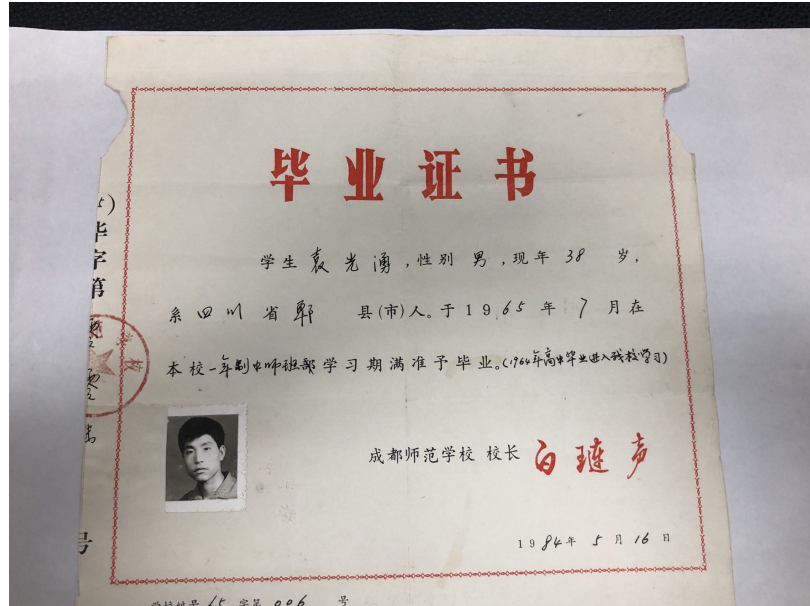 毕业证书
学生袁光湧,性别男,现年38岁,
系四川省郫县(市)人。于1965年7月在
本校一年制中师班部学习期满准予毕业。(1964年高中毕业进入我校学习)
成都师范学校 校长 白琏声
1984年5月16日
毕字第
号
学校编号65字第006号